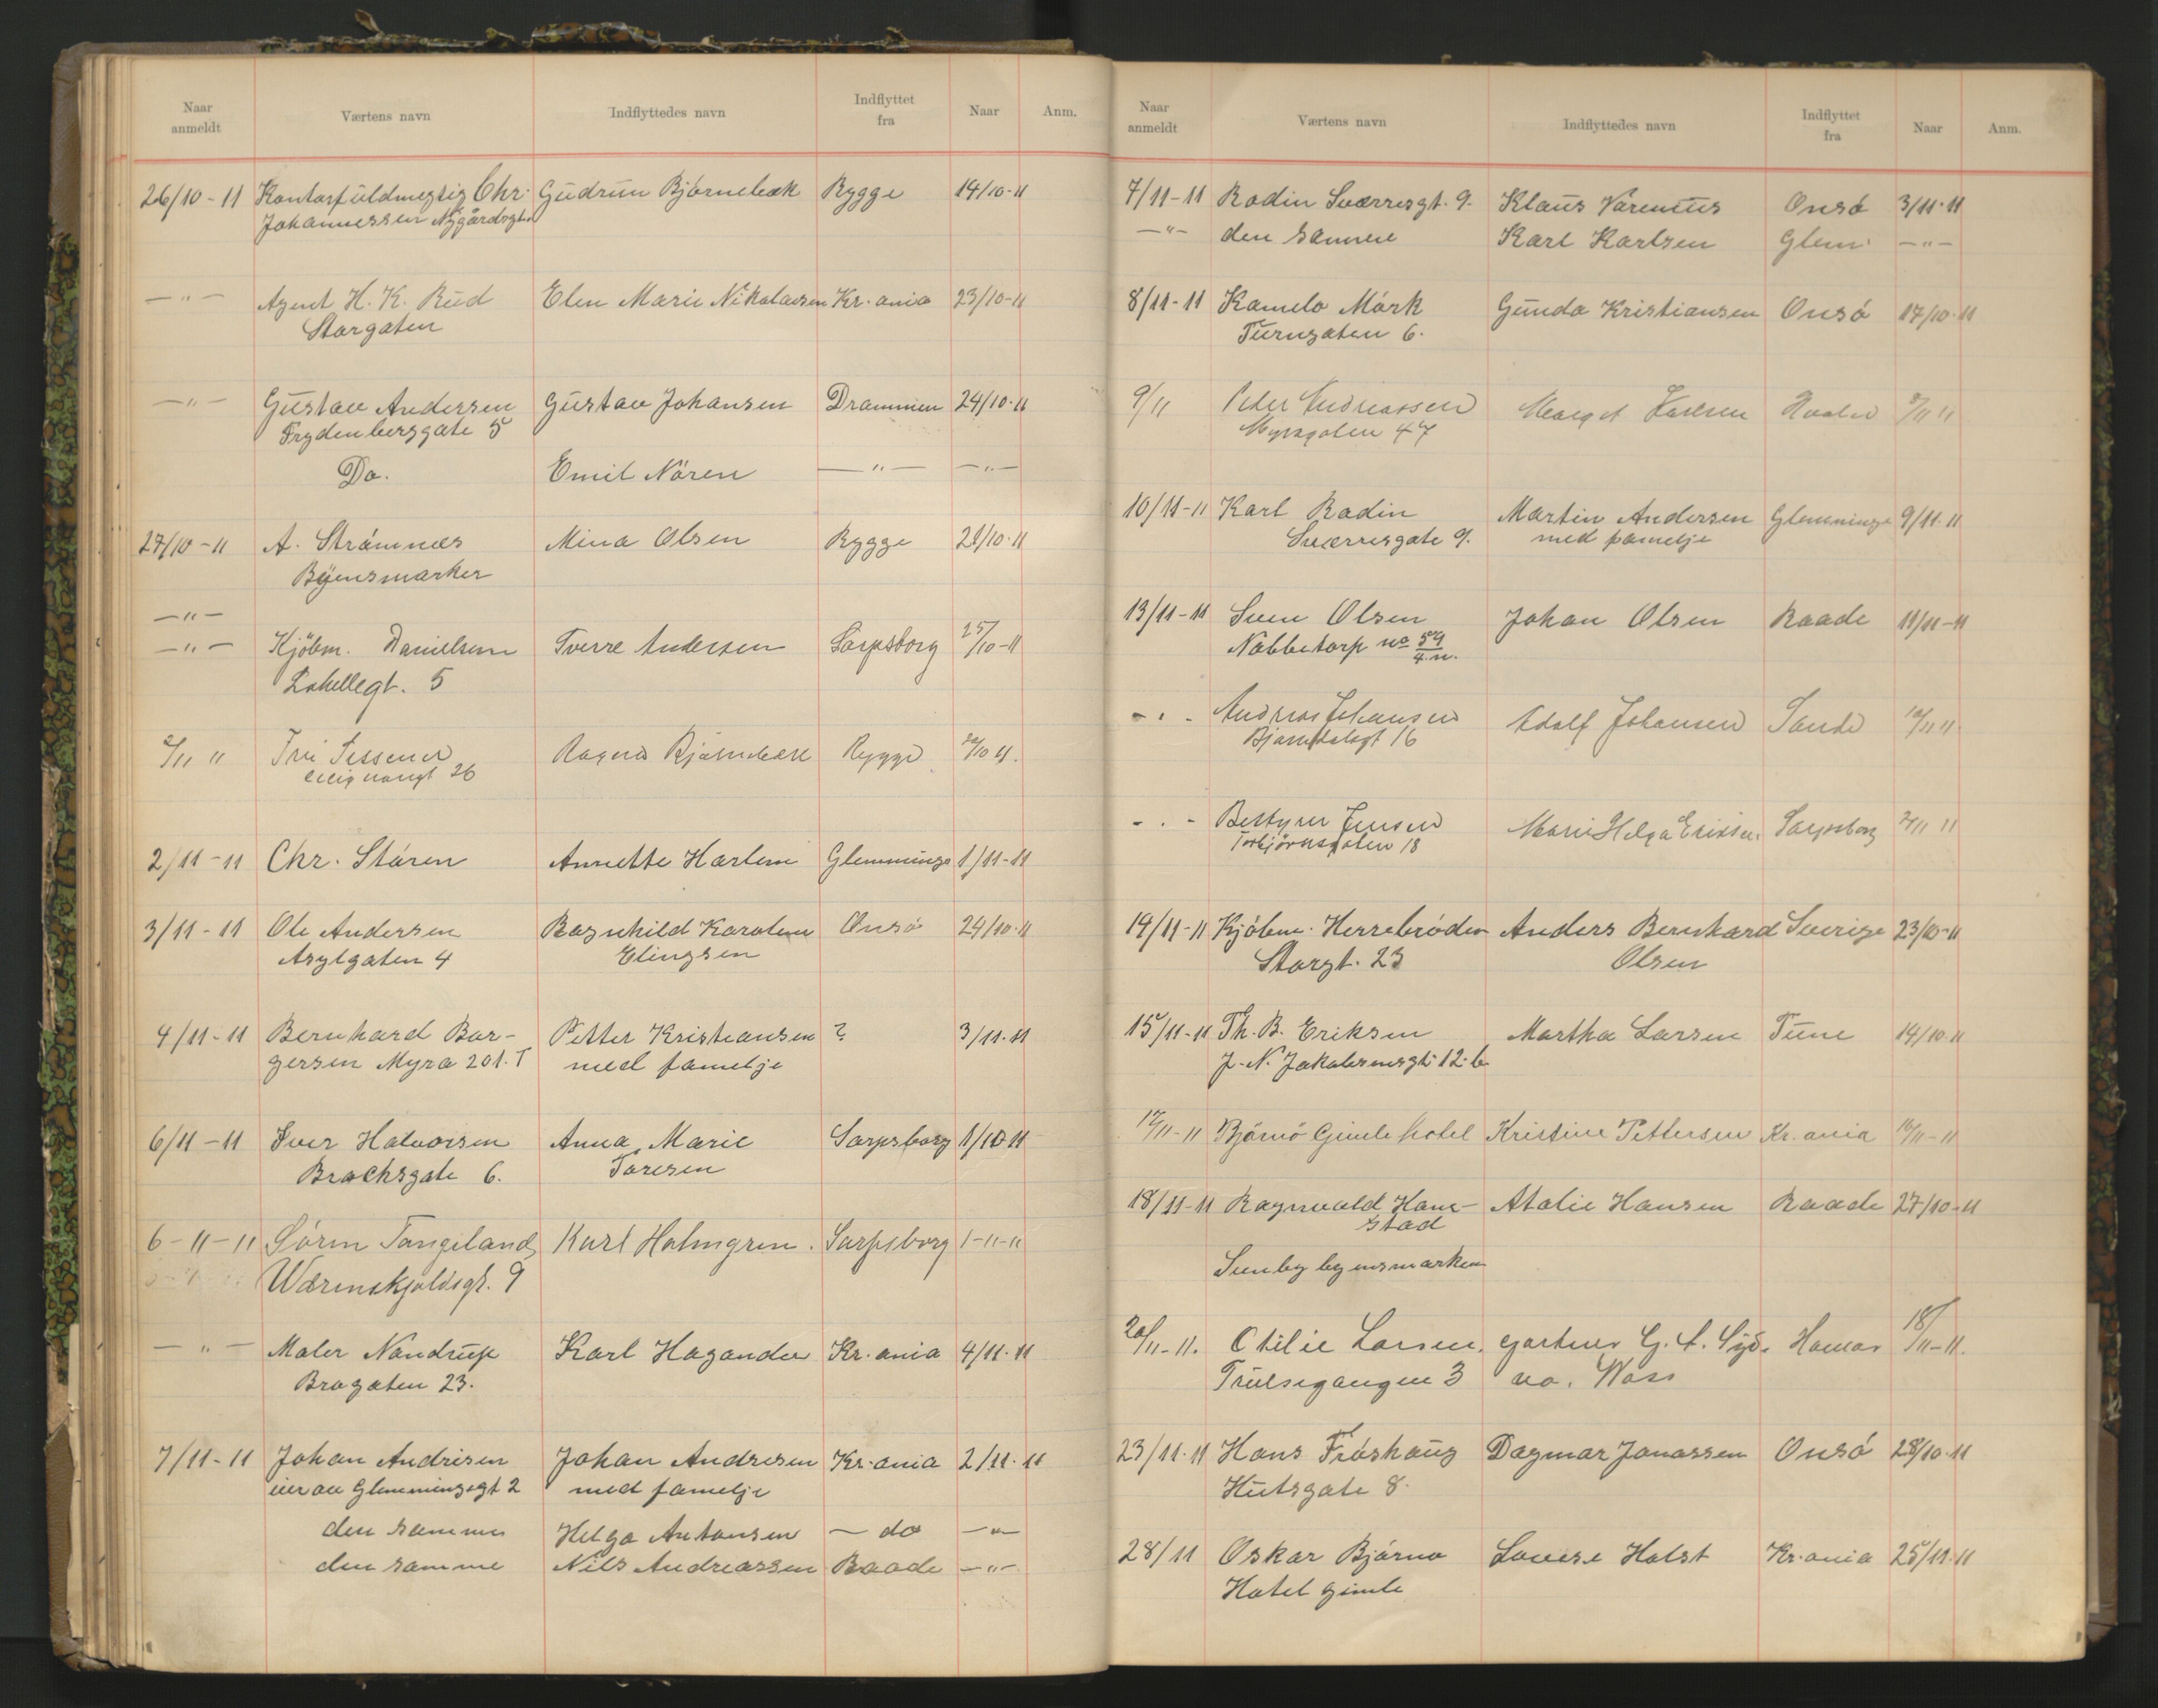 Naar anmeldt Værtens navn Indflyttedes navn Indflyttet fra Naar Anm.
26/10-11 Kontorfuldmegtig Chr. Gudrun Bjørnebæk Rygge 14/10-11
Johannessen Nygårdsgt.
—"— Agent H. K. Rud Elen Marie Nikolaisen Kr.ania 23/10-11
Storgaten
—"— Gustav Andersen Gustav Johansen Drammen 24/10-11
Frydenbergsgate 5
Do. Emil Nören —"— —"—
27/10-11 A. Strömnæs Mina Olsen Rygge 21/10-11
Byensmarker
—"—
—"— Kjöbm. Danielsen Sverre Andersen Sarpsborg 25/10-11
5
2/11 11 Rygge
26
2/11-11 Chr. Stören Annette Harlem Glemminge 1/11-11
3/11-11 Ole Andersen Ragnhild Karoline Onsö 24/10-11
Asylgaten 4 Elingsen
4/11-11 Bernhard Bor- Petter Kristiansen ? 3/11-11
gersen Myra 201.T med familje
6/11-11 Iver Halvorsen Anna Marie Sarpsborg 1/10-11
Brochsgate 6. Toresen
6-11-11 Sörin Tangeland Karl Holmgren. Sarpsborg 1-11-11
Wærenskjoldsgt. 9
—"— Maler Nandrup Karl Hagander Kr.ania 4/11-11
Brogaten 23.
7/11-11 Johan Andresen Johan Andresen Kr.ania 2/11-11
eier av Glemmingegt 2 med familje
den samme Helga Antonsen — do —"—
den samme Nils Andreassen Raade —"—
Naar anmeldt Værtens navn Indflyttedes navn Indflyttet fra Naar Anm.
7/11-11 Rodin Sværresgt. 9. Klaus Varenius Onsö 3/11-11
—"— den samme Karl Karlsen Glem. —"—
8/11-11 Kamelo Mörk Gunda Kristiansen Onsö 17/10-11
Turngaten 6.
9/11 Peder Andreassen
Myragaten 47
10/11-11 Karl Rodin Martin Andersen Glemminge 9/11-11
Sværresgate 9. med familje
13/11-11 Sven Olsen Johan Olsen Raade 11/11-11
Nabbetorp no 59
4.n.
- . - Andreas Johansen Adolf Johansen Sande 10/11 11
16
- . - Bestyrer Jensen Marie Helga Eriksen Sarpsborg
Torbjörnsgaten 18
14/11-11 Kjöbm. Herrebröden Anders Bernhard Sverige 23/10-11
Storgt. 23 Olsen
15/11-11 Th. B. Eriksen Martha Larsen Tune 14/10-11
J. N. Jakobsensgt. 12.b
17/11-11 Björnö Gimle Hotel Kristine Pettersen Kr.ania 16/11-11
18/11-11 Ragnvald Ham- Atalie Hansen Raade 27/10-11
stad
Sunby byensmarken
20/11-11. Otilie Larsen. gartner Hamar 18/11-11.
Trulsegangen 3
23/11-11 Hans Fröshaug Dagmar Jonassen Onsö 28/10-11
Hutsgate 8.
28/11 Oskar Björnø Lovise Holst Kr.ania 25/11-11
Hotel Gimle